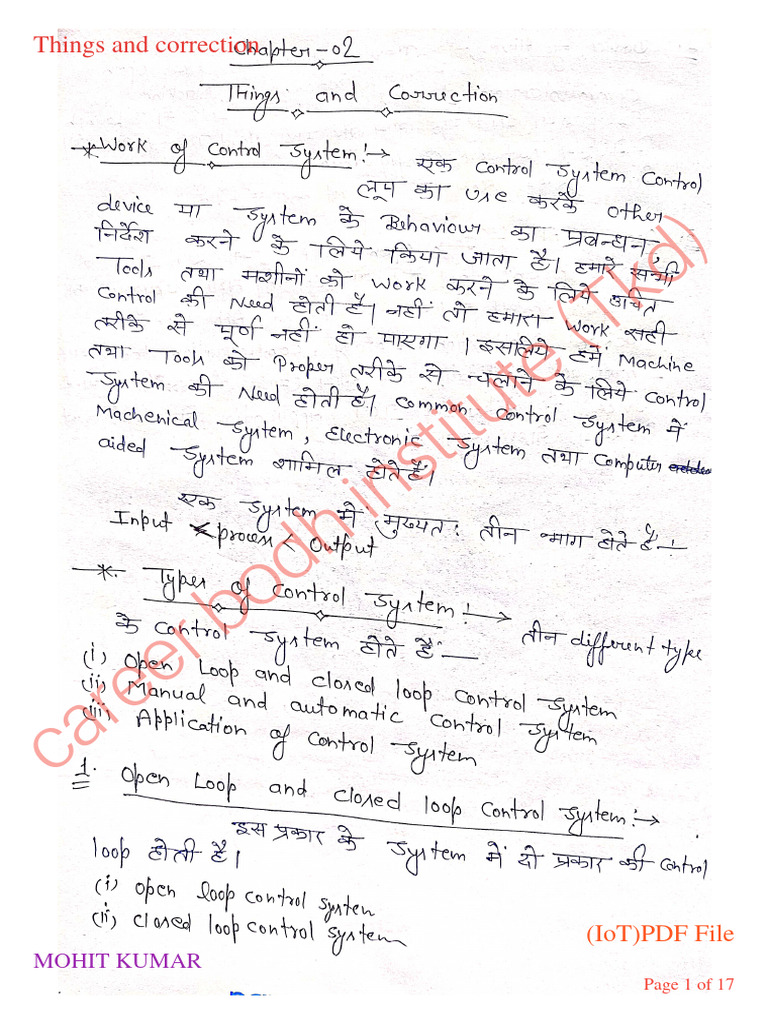 Things and correction
Chapter-02
Things and Correction
* Work of Control System:→ एक Control System Control
लूप का use करके other
device या System के Behaviour का प्रबन्धन,
निर्देश करने के लिये किया जाता है। हमारे सभी
Tools तथा मशीनों को work करने के लिये उचित
Control की Need होती है। नहीं तो हमारा work सही
तरीके से पूर्ण नहीं हो पाएगा। इसलिये हमें Machine
तथा Tools को Proper तरीके से चलाने के लिये Control
System की Need होती है। Common Control System में
Machenical System, Electronic System तथा Computer
aided System शामिल होते हैं।
एक System में मुख्यत: तीन भाग होते हैं:-
Input < process < Output
*. Types of Control System:→ तीन different type
के Control System होते हैं:—
(i) Open Loop and closed loop control System
(ii) Manual and automatic Control System
(iii) Application of Control System
1. Open Loop and closed loop Control System:→
इस प्रकार के System में दो प्रकार की Control
loop होती है।
(i) open loop control system
(ii) closed loop control System
career bodh institute (Tkd)
(IoT)PDF File
MOHIT KUMAR
Page 1 of 17